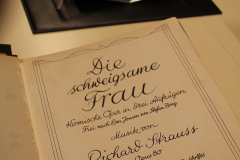 Die
schweigsame
Frau
Komische Oper in drei Aufzügen
Frei nach Ben Jonson von Stefan Zweig
Musik von
Richard Strauss
Opus 80